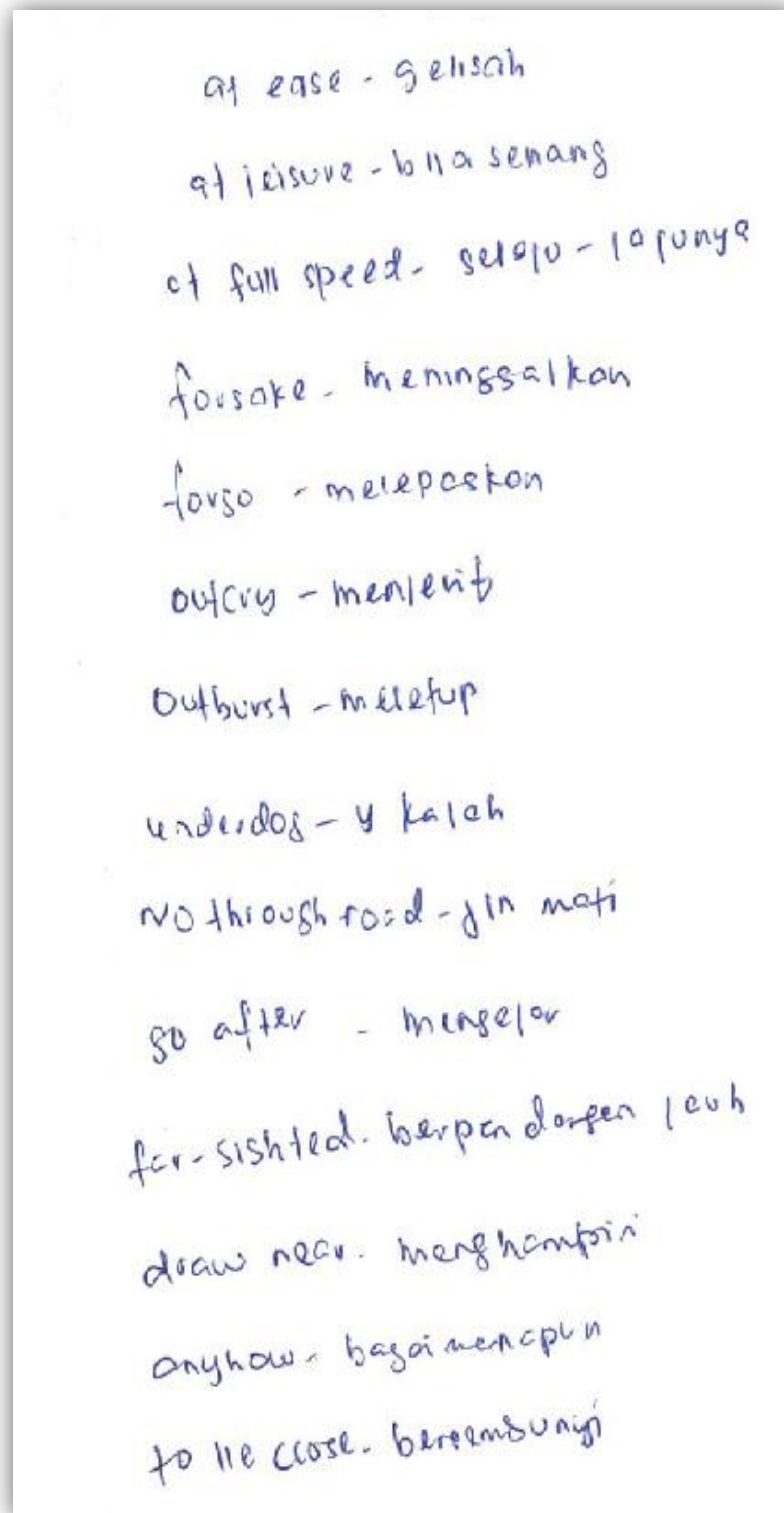 at ease - gelisah
at leisure - bila senang
at full speed - selaju - lajunya
forsake - meninggalkan
forgo - melepaskan
outcry - menjerit
Outburst - meletup
underdog - y kalah
NO through road - jln mati
go after - mengejar
far-sighted - berpandangan jauh
draw near - menghampiri
anyhow - bagaimanapun
to lie close - bersembunyi